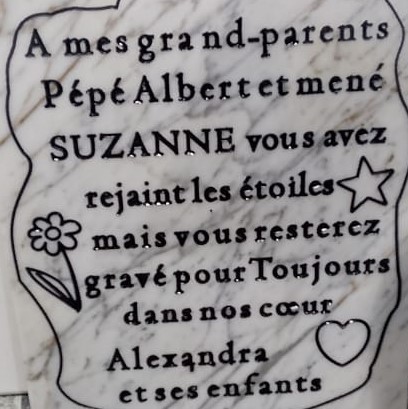 A mes grand-parents
Pépé Albert et mené
SUZANNE vous avez
rejaint les étoiles
mais vous resterez
gravé pour Toujours
dans nos cœur
Alexandra
et ses enfants